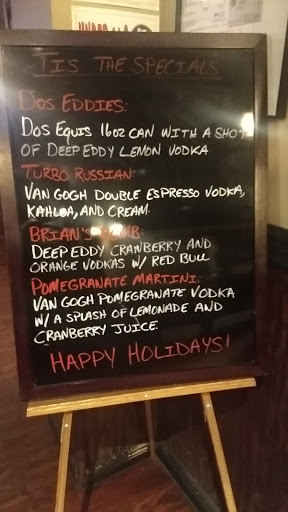 'TIS THE SPECIALS
DOS EDDIES:
DOS EQUIS 16OZ CAN WITH A SHOT
OF DEEP EDDY LEMON VODKA
TURBO RUSSIAN:
VAN GOGH DOUBLE ESPRESSO VODKA,
KAHLUA, AND CREAM.
BRIAN'S
DEEP EDDY CRANBERRY AND
ORANGE VODKAS W/ RED BULL
POMEGRANATE MARTINI:
VAN GOGH POMEGRANATE VODKA
W/ A SPLASH OF LEMONADE AND
CRANBERRY JUICE.
HAPPY HOLIDAYS!